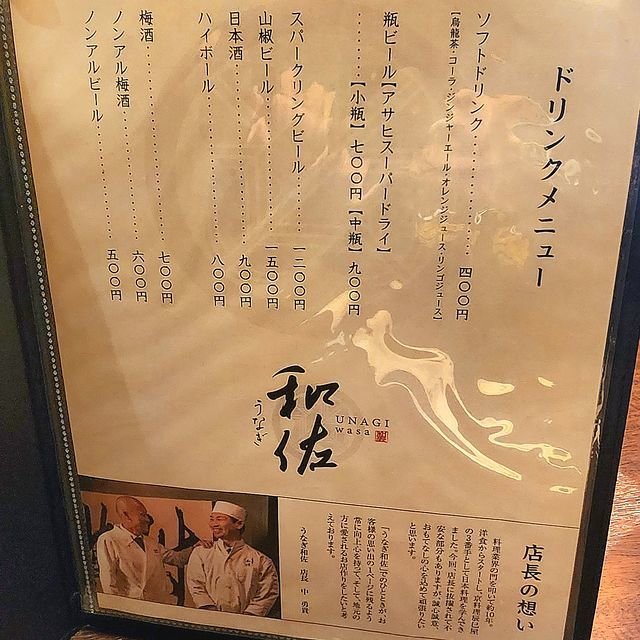 ドリンクメニュー
ソフトドリンク………………… 四〇〇円
【烏龍茶・コーラ・ジンジャーエール・オレンジジュース・リンゴジュース】
瓶ビール【アサヒスーパードライ】
…………【小瓶】七〇〇円【中瓶】九〇〇円
スパークリングビール………… 一二〇〇円
山椒ビール………………… 一五〇〇円
日本酒………………… 九〇〇円
ハイボール………………… 八〇〇円
梅酒………………… 七〇〇円
ノンアル梅酒………………… 六〇〇円
ノンアルビール………………… 五〇〇円
和佐
うなぎ
UNAGI
wasa
店長の想い
料理業界の門を叩いて約10年。
洋食からスタートし、京料理辰巳屋
の3番手として日本料理を学んで
きました。今回、店長に抜擢された不
安な部分もありますが、誠心誠意、
おもてなしの心を込めて頑張りたい
と思います。
「うなぎ和佐」でのひとときが、お
客様の思い出の1ページに残るよう
常に向上心を持って、そして、地元の
方に愛されるお店作りをしたいと考
えております。
うなぎ和佐 店長 中 勇貴